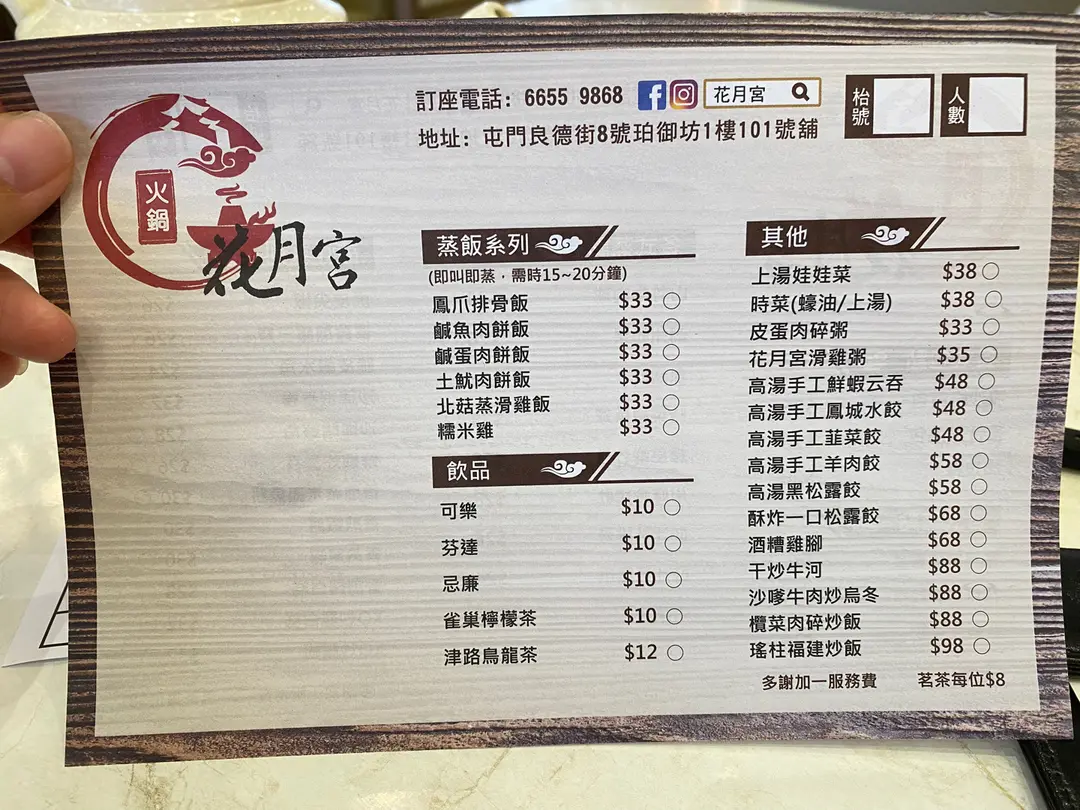 訂座電話：6655 9868 花月宮
地址：屯門良德街8號珀御坊1樓101號舖
枱號
人數
火鍋
花月宮
蒸飯系列
(即叫即蒸，需時15~20分鐘)
鳳爪排骨飯 $33
鹹魚肉餅飯 $33
鹹蛋肉餅飯 $33
土魷肉餅飯 $33
北菇蒸滑雞飯 $33
糯米雞 $33
飲品
可樂 $10
芬達 $10
忌廉 $10
雀巢檸檬茶 $10
津路烏龍茶 $12
其他
上湯娃娃菜 $38
時菜(蠔油/上湯) $38
皮蛋肉碎粥 $33
花月宮滑雞粥 $35
高湯手工鮮蝦云吞 $48
高湯手工鳳城水餃 $48
高湯手工韮菜餃 $48
高湯手工羊肉餃 $58
高湯黑松露餃 $58
酥炸一口松露餃 $68
酒糟雞腳 $68
干炒牛河 $88
沙嗲牛肉炒烏冬 $88
欖菜肉碎炒飯 $88
瑤柱福建炒飯 $98
多謝加一服務費 茗茶每位$8